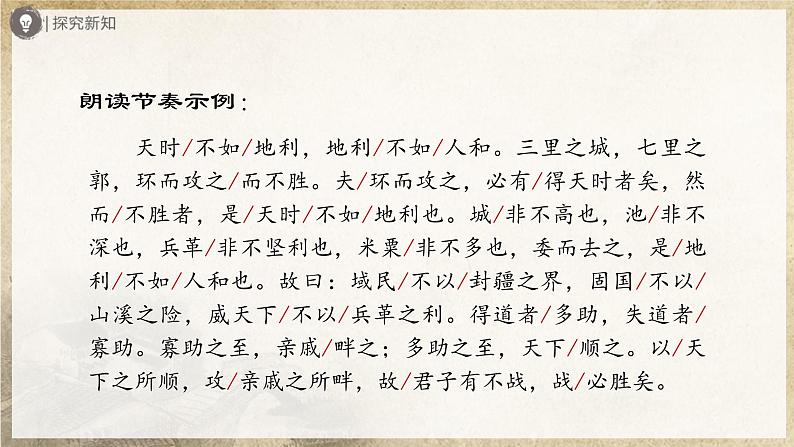 探究新知
朗读节奏示例：
天时/不如/地利，地利/不如/人和。三里之城，七里之
郭，环而攻之/而不胜。夫/环而攻之，必有/得天时者矣，然
而/不胜者，是/天时/不如/地利也。城/非不高也，池/非不
深也，兵革/非不坚利也，米粟/非不多也，委而去之，是/地
利/不如/人和也。故曰：域民/不以/封疆之界，固国/不以/
山溪之险，威天下/不以/兵革之利。得道者/多助，失道者/
寡助。寡助之至，亲戚/畔之；多助之至，天下/顺之。以/天
下之所顺，攻/亲戚之所畔，故/君子有不战，战/必胜矣。